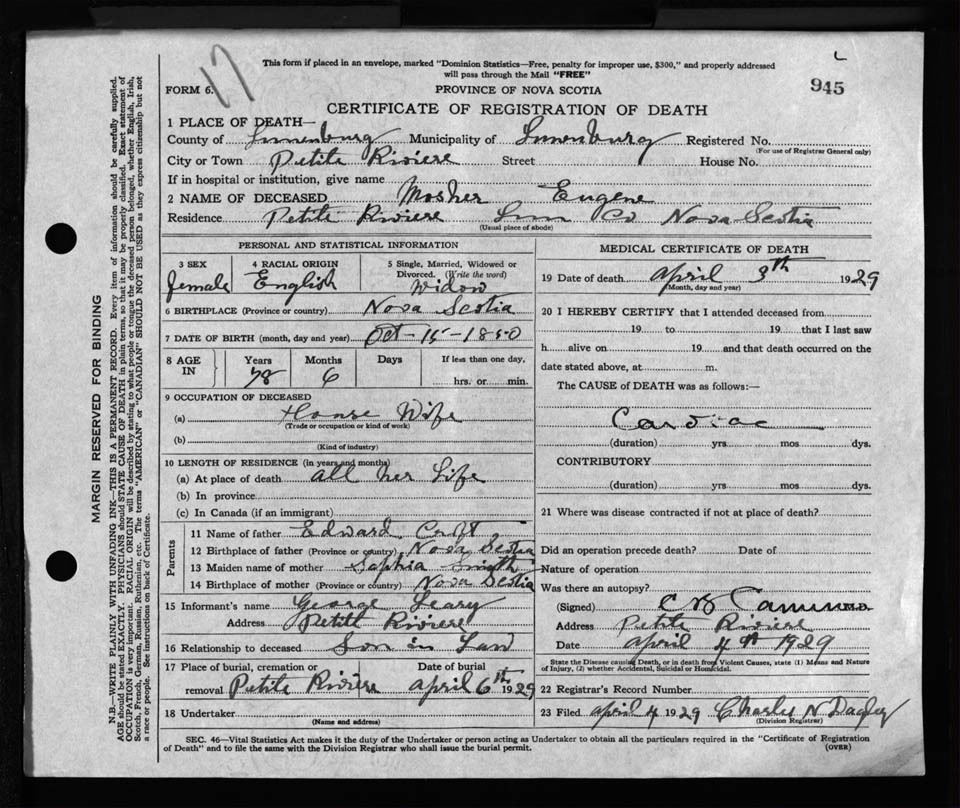 17
This form if placed in an envelope, marked "Dominion Statistics—Free, penalty for improper use, $300," and properly addressed
will pass through the Mail "FREE"
945
FORM 6.
PROVINCE OF NOVA SCOTIA
CERTIFICATE OF REGISTRATION OF DEATH
1 PLACE OF DEATH—
County of Lunenburg Municipality of Lunenburg Registered No.
(For use of Registrar General only)
City or Town Petite Riviere Street House No.
If in hospital or institution, give name
2 NAME OF DECEASED Mosher Eugene
Residence Petite Riviere Lun Co Nova Scotia
(Usual place of abode)
PERSONAL AND STATISTICAL INFORMATION
3 SEX 4 RACIAL ORIGIN 5 Single, Married, Widowed or
Divorced. (Write the word)
female English Widow
6 BIRTHPLACE (Province or country) Nova Scotia
7 DATE OF BIRTH (month, day and year) Oct-15-1850
8 AGE IN Years Months Days If less than one day,
78 6 hrs. or min.
9 OCCUPATION OF DECEASED
(a) House Wife
(Trade or occupation or kind of work)
(b)
(Kind of industry)
10 LENGTH OF RESIDENCE (in years and months)
(a) At place of death all her Life
(b) In province
(c) In Canada (if an immigrant)
Parents
11 Name of father Edward Croft
12 Birthplace of father (Province or country) Nova Scotia
13 Maiden name of mother Sophia Smith
14 Birthplace of mother (Province or country) Nova Scotia
15 Informant's name George Leary
Address Petite Riviere
16 Relationship to deceased Son in Law
17 Place of burial, cremation or Date of burial
removal Petite Riviere April 6th 1929
18 Undertaker
(Name and address)
MEDICAL CERTIFICATE OF DEATH
19 Date of death April 3th 1929
(Month, day and year)
20 I HEREBY CERTIFY that I attended deceased from
19 to 19 that I last saw
h alive on 19 and that death occurred on the
date stated above, at m.
The CAUSE of DEATH was as follows:—
Cardiac
(duration) yrs mos dys.
CONTRIBUTORY
(duration) yrs mos dys.
21 Where was disease contracted if not at place of death?
Did an operation precede death? Date of
Nature of operation
Was there an autopsy?
(Signed) M.D.
Address Petite Riviere
Date April 4th 1929
State the Disease causing Death, or in death from Violent Causes, state (1) Means and Nature
of Injury, (2) whether Accidental, Suicidal or Homicidal.
22 Registrar's Record Number
23 Filed April 4 1929 Charles N Dagley
(Division Registrar)
SEC. 46—Vital Statistics Act makes it the duty of the Undertaker or person acting as Undertaker to obtain all the particulars required in the "Certificate of Registration
of Death" and to file the same with the Division Registrar who shall issue the burial permit.
(OVER)
MARGIN RESERVED FOR BINDING
N.B.—WRITE PLAINLY WITH UNFADING INK—THIS IS A PERMANENT RECORD. Every item of information should be carefully supplied.
AGE should be stated EXACTLY. PHYSICIANS should STATE CAUSE OF DEATH in plain terms, so that it may be properly classified. Exact statement of
OCCUPATION is very important. RACIAL ORIGIN will be described by stating to what people or tongue the deceased person belonged, whether English, Irish,
Scotch, French, German, Russian, Ruthenian, etc. The terms "AMERICAN" or "CANADIAN" SHOULD NOT BE USED as they express citizenship but not
a race or people. See instructions on back of Certificate.